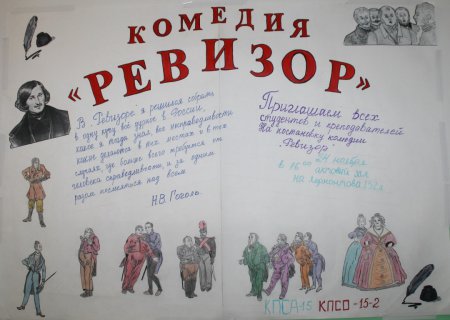 КОМЕДИЯ
«РЕВИЗОР»
В "Ревизоре" я решился собрать
в одну кучу всё дурное в России,
какое я тогда знал, все несправедливости
какие делаются в тех местах и в тех
случаях, где больше всего требуется от
человека справедливости, и за одним
разом посмеяться над всем
Н.В. Гоголь
Приглашаем всех
студентов и преподавателей
на постановку комедии
"Ревизор"
24 ноября
в 15 00
актовый зал
на Лермонтова
КПСД-15 КПСО-15-2